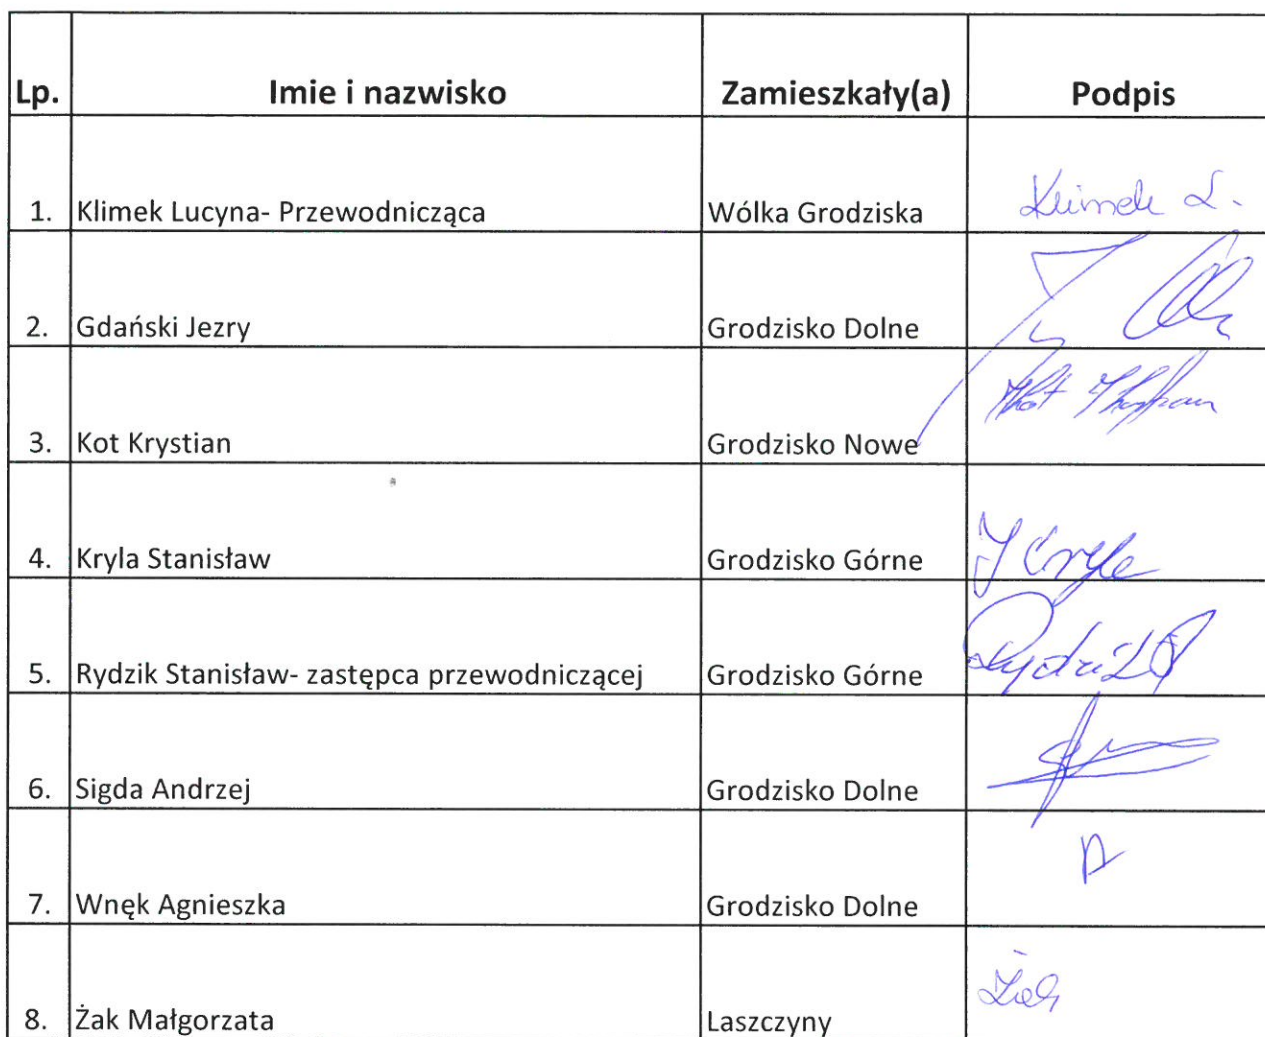 Lp. Imie i nazwisko Zamieszkały(a) Podpis
1. Klimek Lucyna- Przewodnicząca Wólka Grodziska Klimek L.
2. Gdański Jezry Grodzisko Dolne
3. Kot Krystian Grodzisko Nowe Kot Krystian
4. Kryla Stanisław Grodzisko Górne
5. Rydzik Stanisław- zastępca przewodniczącej Grodzisko Górne
6. Sigda Andrzej Grodzisko Dolne
7. Wnęk Agnieszka Grodzisko Dolne
8. Żak Małgorzata Laszczyny Żak